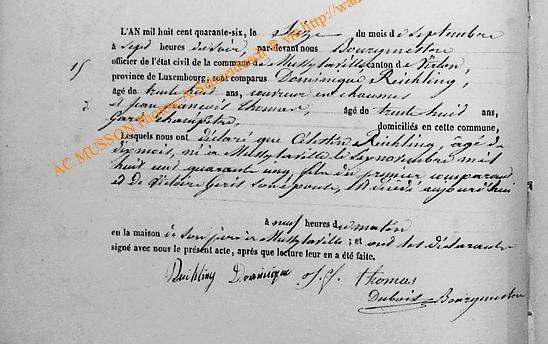 L'AN mil huit cent quarante-six, le Seize du mois de Septembre
à Sept heures du Soir, par-devant nous Bourgmestre
officier de l'état civil de la commune de Mussylaville canton de Virton,
15
province de Luxembourg, sont comparus Dominique Reichling,
âgé de trente huit ans, couvreur en chaumes
7
et Jean françois thomas, âgé de trente huit ans,
Garde champêtre, domiciliés en cette commune,
Lesquels nous ont déclaré que Célestin Reichling, âgé de
dix mois, né à Mussylaville le novembre mil
huit cent quarante cinq, fils du premier comparant
et de Victoire son épouse, est décédé aujourd'hui
à neuf heures du matin
en la maison de son père à Mussylaville ; et ont les déclarants
signé avec nous le présent acte, après que lecture leur en a été faite.
Reichling Dominique J. f. thomas
Dubois Bourgmestre
AC MUSSON